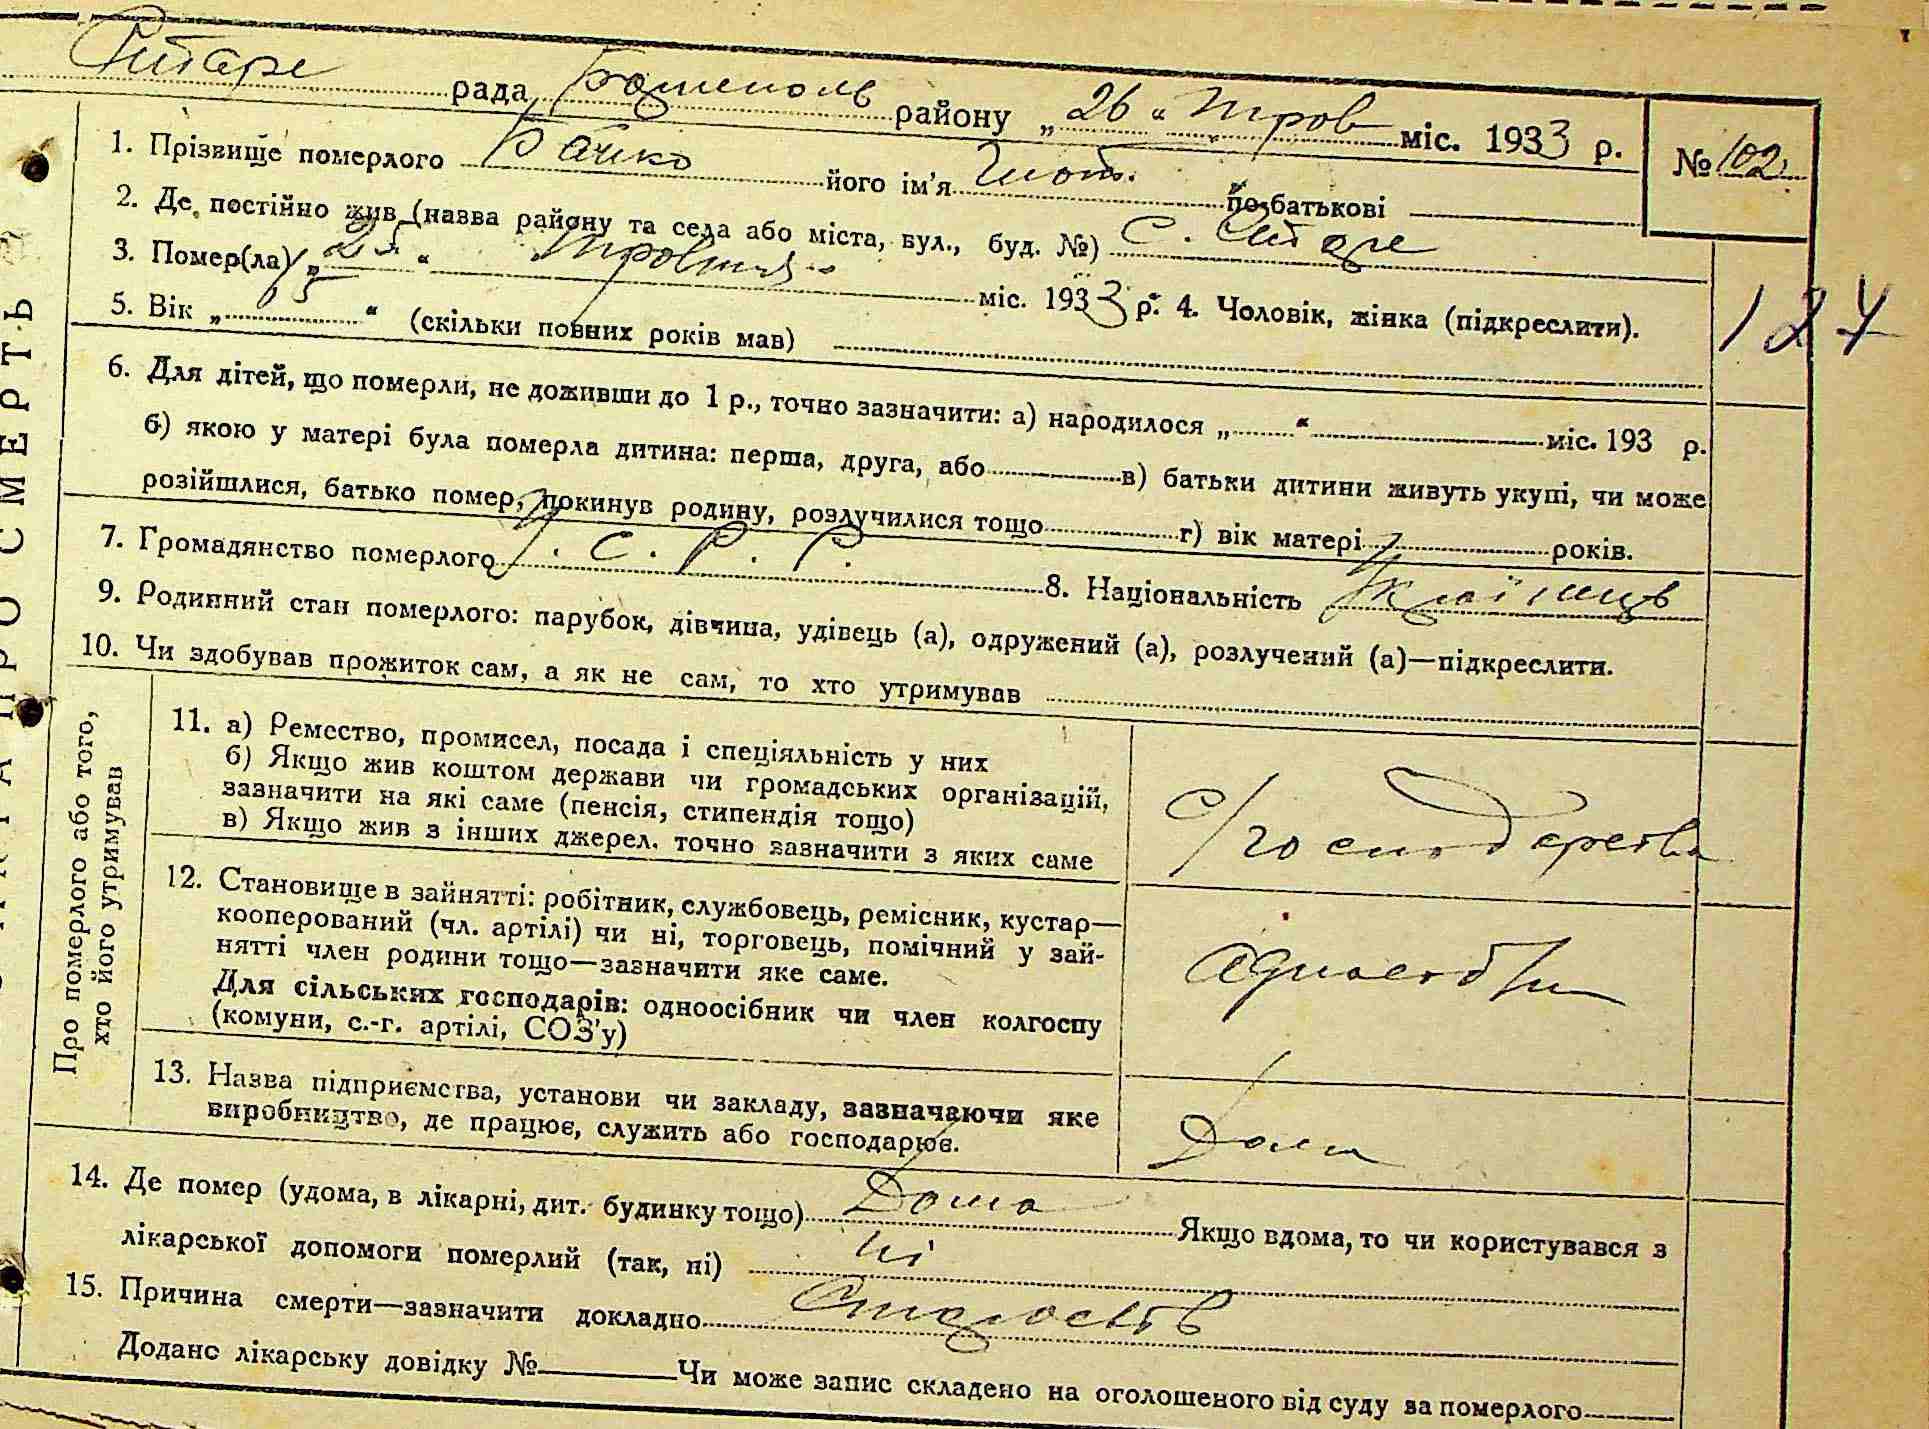 рада Бориспіль району „26“ Тров міс. 1933 р.
№ 102
1. Прізвище померлого Бачко його ім'я по-батькові
2. Де постійно жив (назва району та села або міста, вул., буд. №) с.
3. Помер(ла) „25“ міс. 1933 р. 4. Чоловік, жінка (підкреслити).
127
5. Вік „ “ (скільки повних років мав)
6. Для дітей, що померли, не доживши до 1 р., точно зазначити: а) народилося „ “ міс. 193 р.
б) якою у матері була померла дитина: перша, друга, або в) батьки дитини живуть укупі, чи може
розійшлися, батько помер, покинув родину, розлучилися тощо г) вік матері років.
7. Громадянство померлого У. С. Р. Р. 8. Національність Українець
9. Родинний стан померлого: парубок, дівчина, удівець (а), одружений (а), розлучений (а)—підкреслити.
10. Чи здобував прожиток сам, а як не сам, то хто утримував
Про померлого або того,
хто його утримував
11. а) Ремество, промисел, посада і спеціяльність у них
б) Якщо жив коштом держави чи громадських організацій,
зазначити на які саме (пенсія, стипендія тощо)
в) Якщо жив з інших джерел. точно зазначити з яких саме
с/господарства
12. Становище в зайнятті: робітник, службовець, ремісник, кустар—
кооперований (чл. артілі) чи ні, торговець, помічний у зай-
нятті член родини тощо—зазначити яке саме.
Для сільських господарів: одноосібник чи член колгоспу
(комуни, с.-г. артілі, СОЗ'у)
13. Назва підприємства, установи чи закладу, зазначаючи яке
виробництво, де працює, служить або господарює.
Дома
14. Де помер (удома, в лікарні, дит. будинку тощо) Дома Якщо вдома, то чи користувався з
лікарської допомоги померлий (так, ні) ні
15. Причина смерти—зазначити докладно Старость
Додано лікарську довідку № Чи може запис складено на оголошеного від суду за померлого